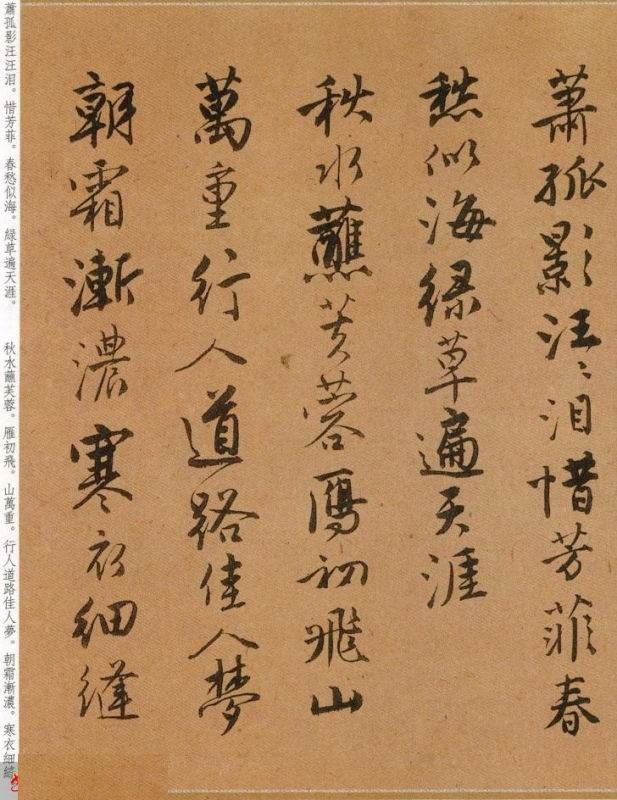 蕭孤影汪〻泪惜芳菲春
愁似海緑草遍天涯
秋水蘸芙蓉鴈初飛山
萬重行人道路佳人夢
朝霜漸濃寒衣細縫
蕭孤影汪汪泪。惜芳菲。春愁似海。緑草遍天涯。　秋水蘸芙蓉。雁初飛。山萬重。行人道路佳人夢。朝霜漸濃。寒衣細縫